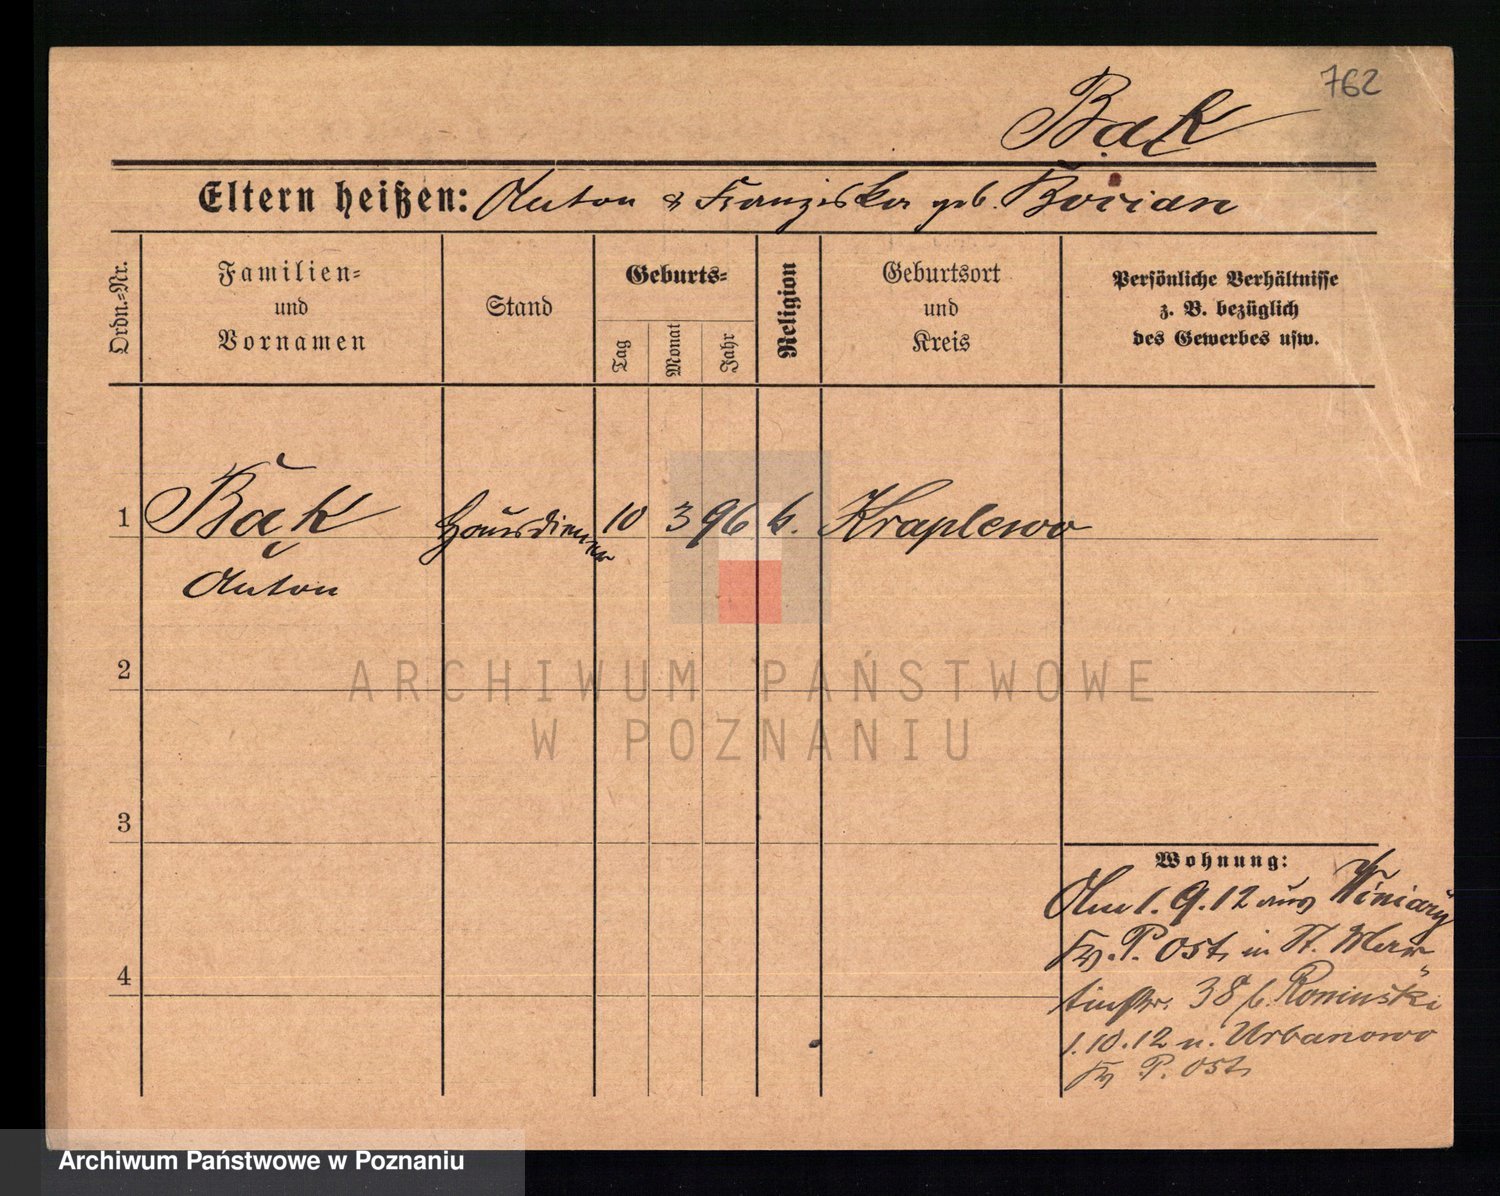 762
Bąk
Eltern heißen: Anton & Franziska geb. Borian
Ordn.=Nr.
Familien=
und
Vornamen
Stand
Geburts=
Tag
Monat
Jahr
Religion
Geburtsort
und
Kreis
Persönliche Verhältnisse
z. B. bezüglich
des Gewerbes usw.
1 Bąk Hausdiener 10 3 96 k. Kraplewo
Anton
2
3
4
Wohnung:
Am 1.9.12 aus Winiary
Kr. P. Ost, in St. Mar
tinstr. 38 b. Kominski
1.10.12 n. Urbanowo
Kr P. Ost,
ARCHIWUM PAŃSTWOWE
W POZNANIU
Archiwum Państwowe w Poznaniu